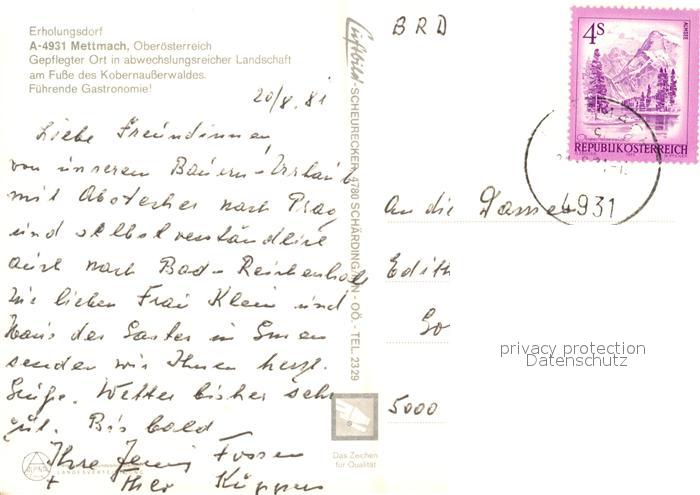 Erholungsdorf
A-4931 Mettmach, Oberösterreich
Gepflegter Ort in abwechslungsreicher Landschaft
am Fuße des Kobernaußerwaldes.
Führende Gastronomie!
20/8. 81
Liebe Freundinnen,
von unserem Bauern-Urlaub
mit Abstecher nach Prag
und selbstverständlich
auch nach Bad-Reichenhall
zu lieben Frau Klein und
senden wir Ihnen herzl.
Grüße. Wetter bisher sehr
gut. Bis bald
Ihre Jenni Fussen
+ Theo Küppers
ALPINA
LANDESVERLAG
Luftbild-SCHEURECKER, 4780 SCHÄRDING/INN - OÖ. - TEL. 2329
Das Zeichen
für Qualität
BRD
4S
ALMSEE
REPUBLIK ÖSTERREICH
4931
An die Damen
Edith
5000
privacy protection
Datenschutz